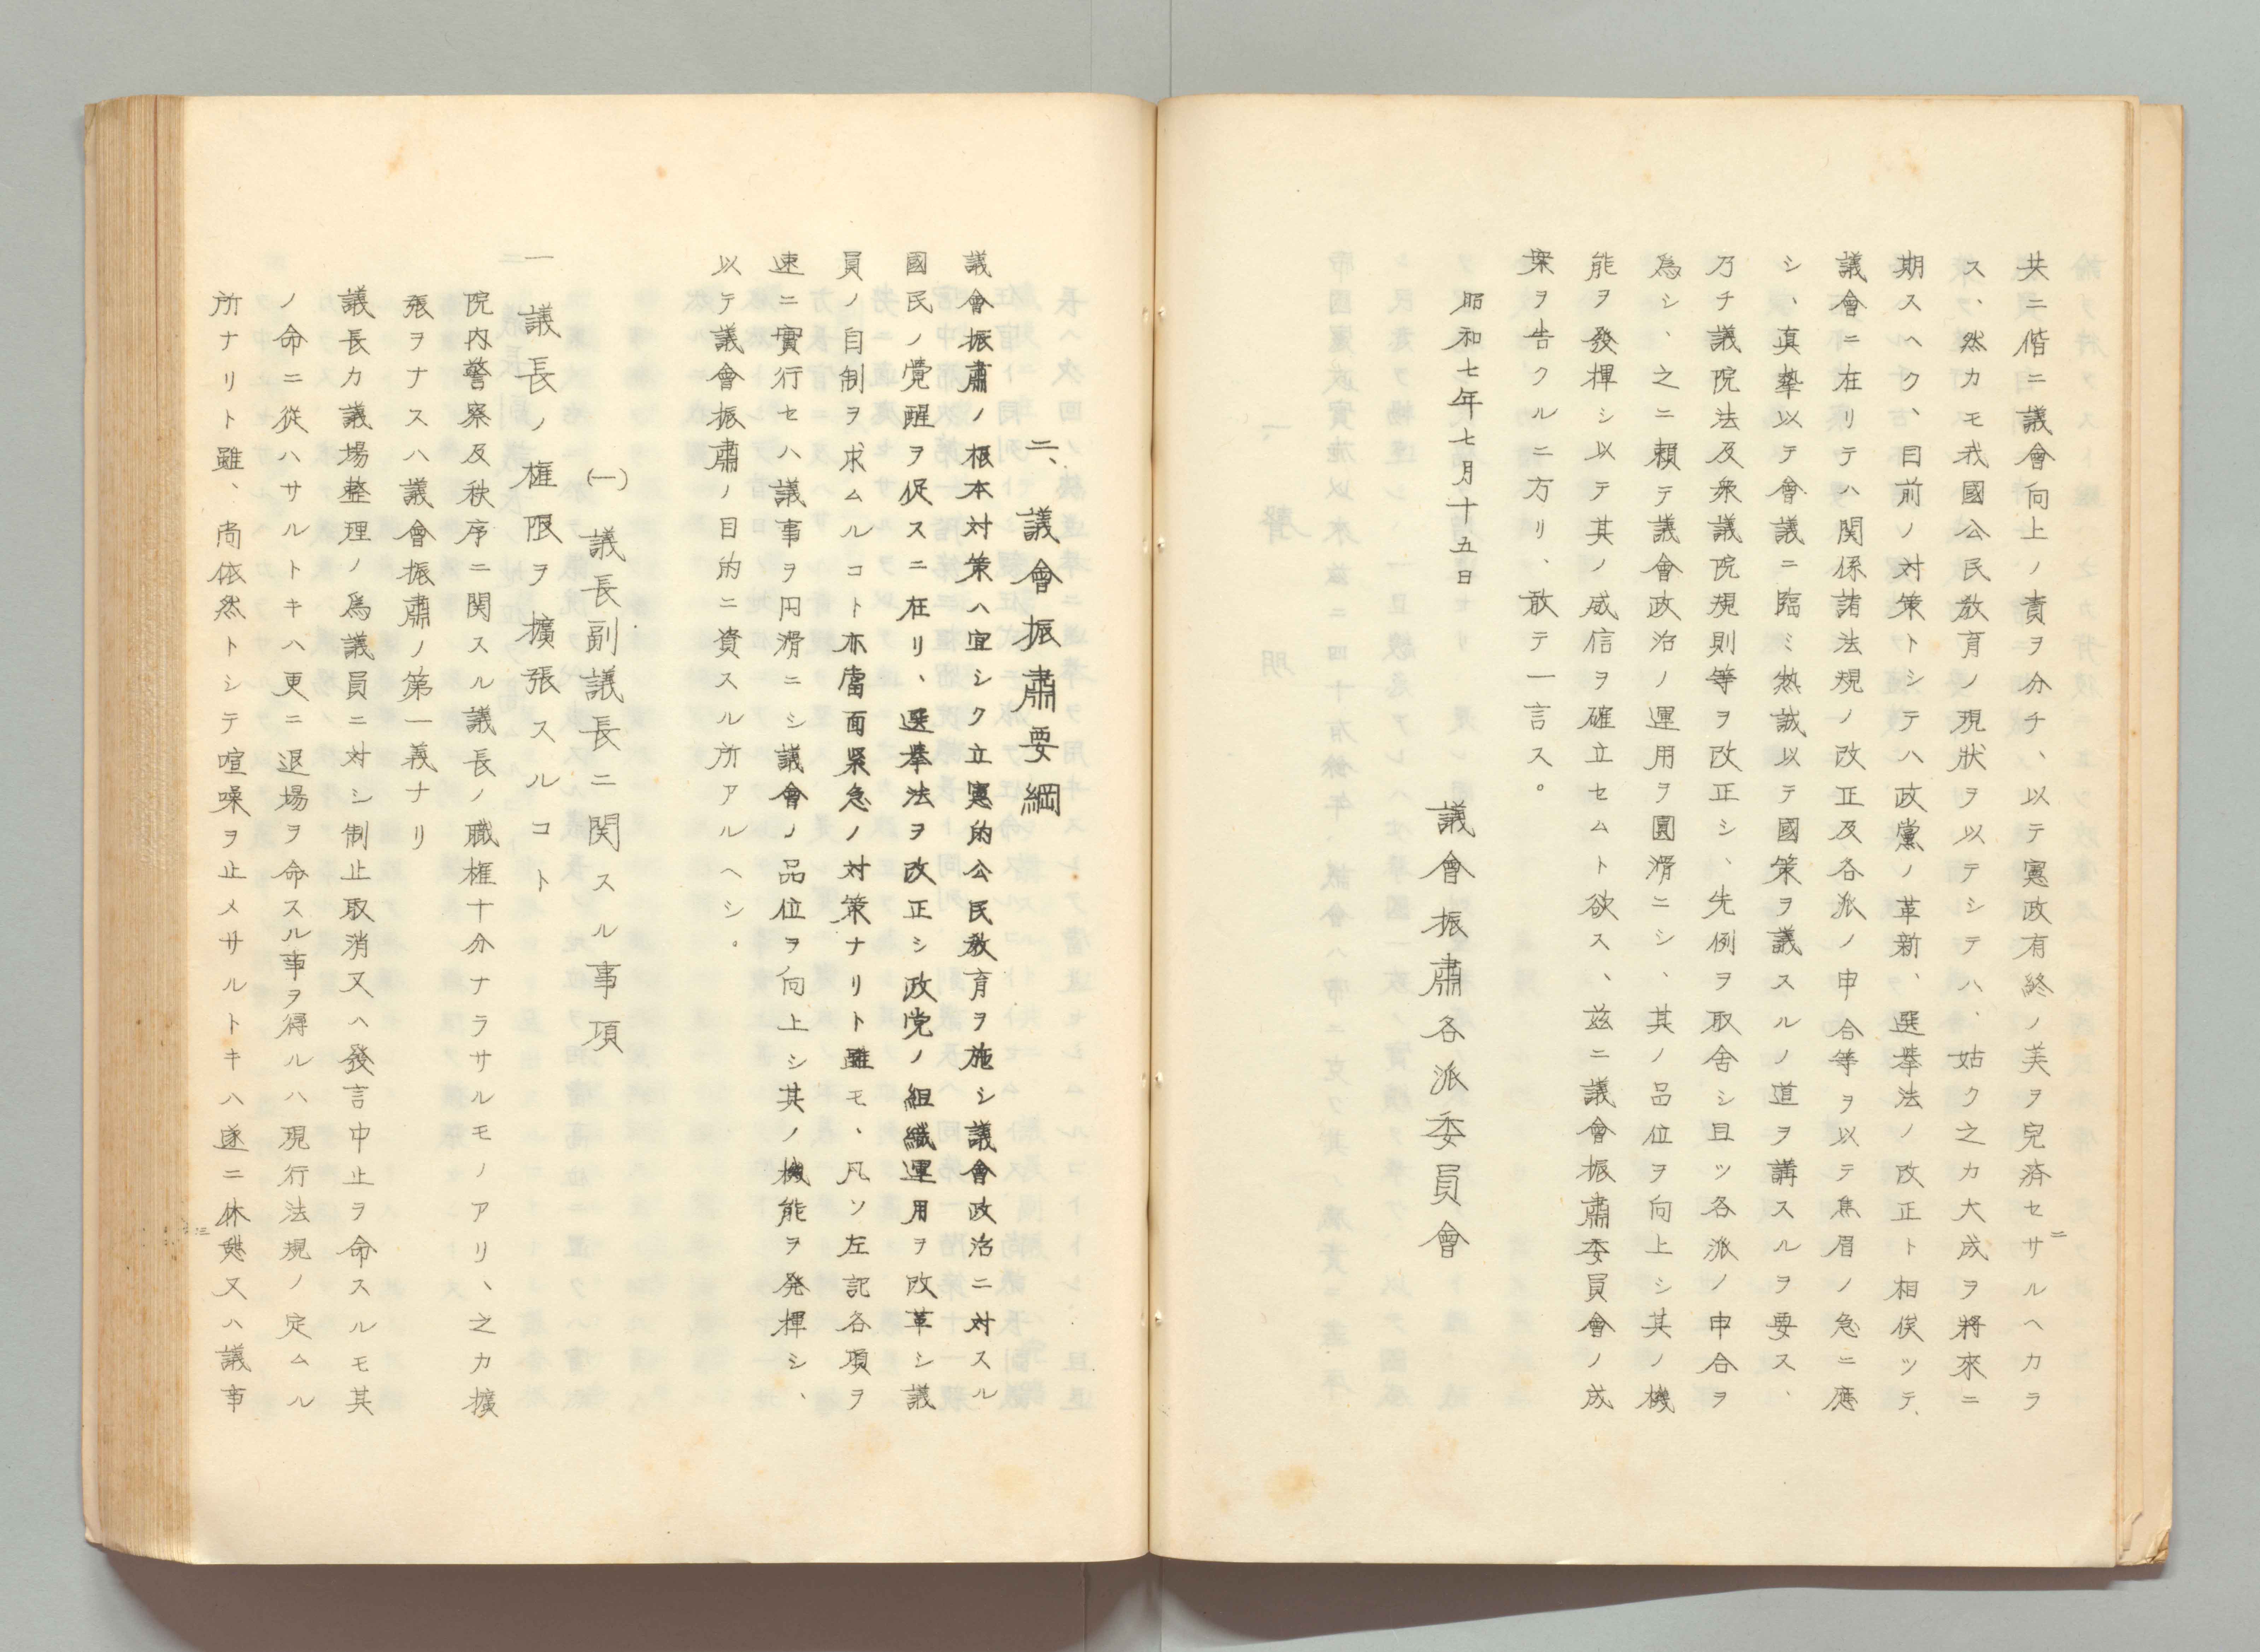 共ニ偕ニ議會向上ノ責ヲ分チ、以テ憲政有終ノ美ヲ完済セサルヘカラ
ス、然カモ我國公民敎育ノ現狀ヲ以テシテハ、姑ク之カ大成ヲ將來ニ
期スヘク、目前ノ対策トシテハ政黨ノ革新、選擧法ノ改正ト相俟ツテ、
議會ニ在リテハ関係諸法規ノ改正及各派ノ申合等ヲ以テ焦眉ノ急ニ應
シ、真摯以テ會議ニ臨ミ熱誠以テ國策ヲ議スルノ道ヲ講スルヲ要ス、
乃チ議院法及衆議院規則等ヲ改正シ、先例ヲ取舎シ且ツ各派ノ申合ヲ
爲シ、之ニ頼テ議會政治ノ運用ヲ圓滑ニシ、其ノ品位ヲ向上シ其ノ機
能ヲ發揮シ以テ其ノ威信ヲ確立セムト欲ス、茲ニ議會振肅委員會ノ成
案ヲ告クルニ方リ、敢テ一言ス。
昭和七年七月十五日
議會振肅各派委員會
二
二、議會振肅要綱
議會振肅ノ根本対策ハ宜シク立憲的公民敎育ヲ施シ議會政治ニ対スル
國民ノ覚醒ヲ促スニ在リ、選擧法ヲ改正シ政党ノ組織運用ヲ改革シ議
員ノ自制ヲ求ムルコト亦當面緊急ノ対策ナリト雖モ、凡ソ左記各項ヲ
速ニ實行セハ議事ヲ円滑ニシ議會ノ品位ヲ向上シ其ノ機能ヲ発揮シ、
以テ議會振肅ノ目的ニ資スル所アルヘシ。
(一) 議長副議長ニ関スル事項
一 議長ノ権限ヲ擴張スルコト
院内警察及秩序ニ関スル議長ノ職権十分ナラサルモノアリ、之カ擴
張ヲナスハ議會振肅ノ第一義ナリ
議長カ議場整理ノ爲議員ニ対シ制止取消又ハ發言中止ヲ命スルモ其
ノ命ニ從ハサルトキハ更ニ退場ヲ命スル事ヲ得ルハ現行法規ノ定ムル
所ナリト雖、尚依然トシテ喧噪ヲ止メサルトキハ遂ニ休憩又ハ議事
三